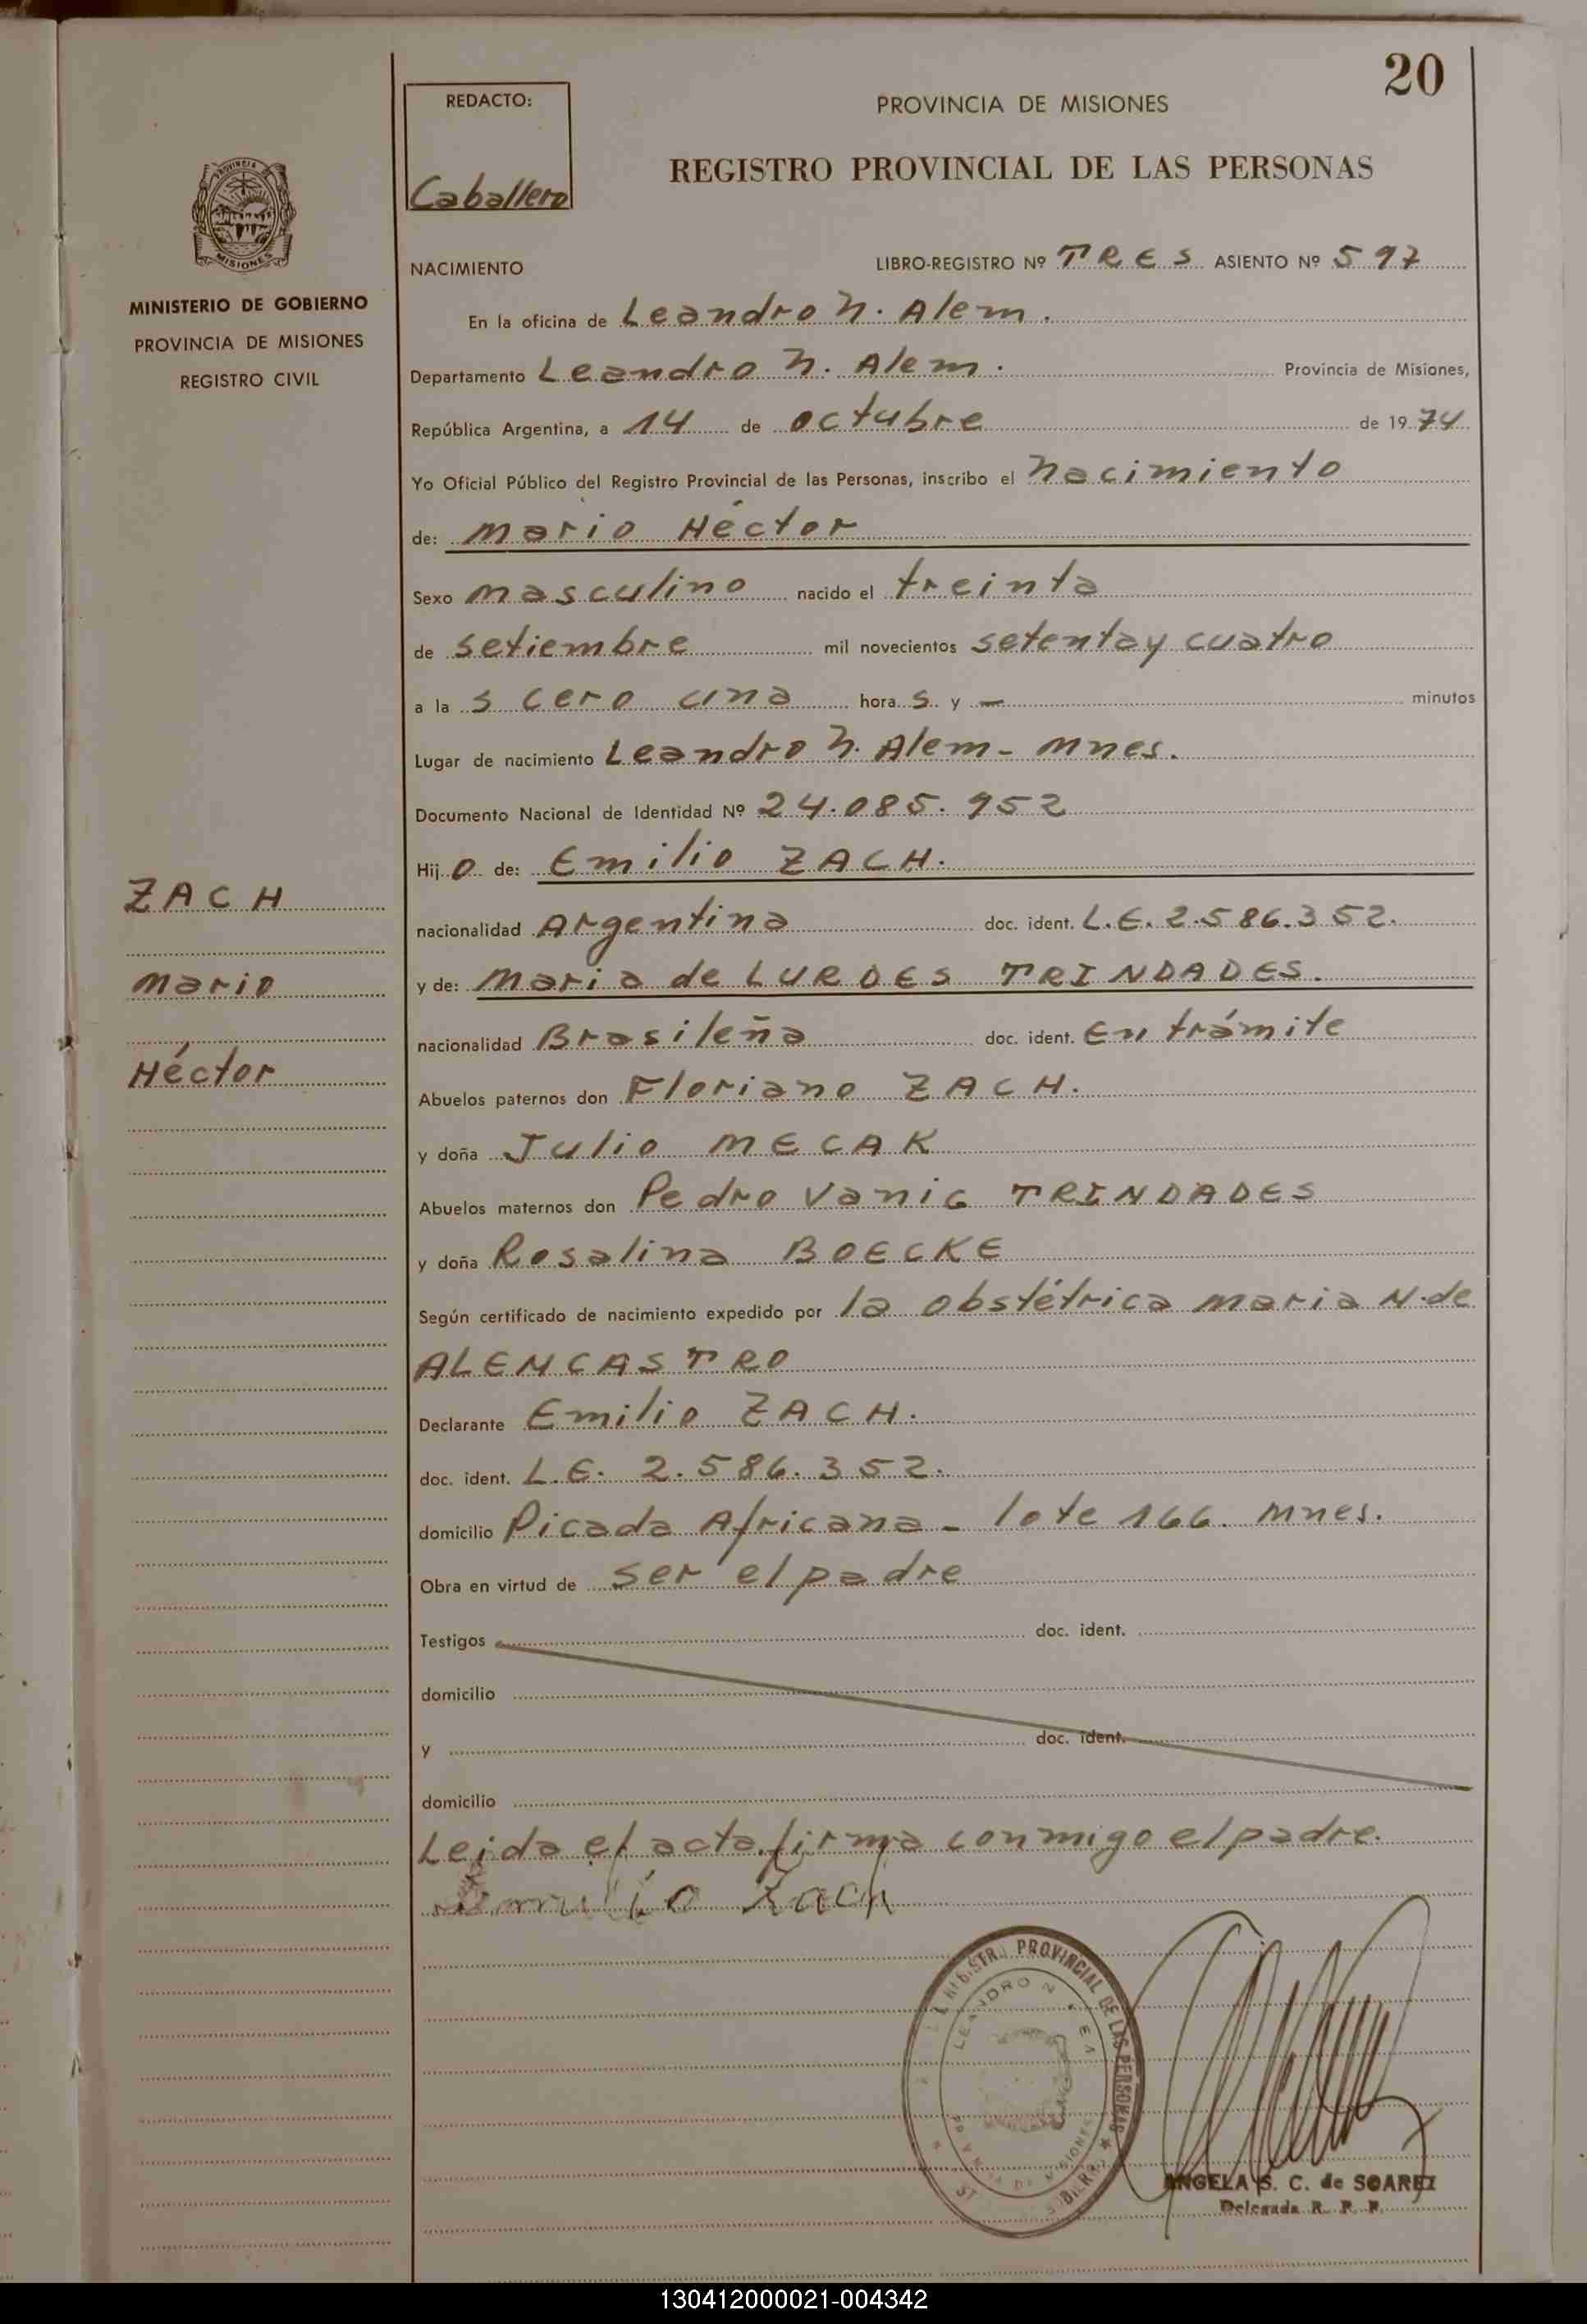 20
REDACTO:
Caballero
PROVINCIA DE MISIONES
REGISTRO PROVINCIAL DE LAS PERSONAS
PROVINCIA
MISIONES
MINISTERIO DE GOBIERNO
PROVINCIA DE MISIONES
REGISTRO CIVIL
NACIMIENTO LIBRO-REGISTRO Nº TRES ASIENTO Nº 597
En la oficina de Leandro N. Alem.
Departamento Leandro N. Alem. Provincia de Misiones,
República Argentina, a 14 de octubre de 1974
Yo Oficial Público del Registro Provincial de las Personas, inscribo el nacimiento
de: Mario Héctor
Sexo masculino nacido el treinta
de setiembre mil novecientos setenta y cuatro
a las cero una horas y — minutos
Lugar de nacimiento Leandro N. Alem - Mnes.
Documento Nacional de Identidad Nº 24.085.952
Hijo de: Emilio ZACH.
nacionalidad Argentina doc. ident. L.E. 2.586.352.
y de: Maria de LURDES TRINDADES.
nacionalidad Brasileña doc. ident. En trámite
Abuelos paternos don Floriano ZACH.
y doña Julio MECAK
Abuelos maternos don Pedro Vanic TRINDADES
y doña Rosalina BOECKE
Según certificado de nacimiento expedido por la obstétrica Maria N. de
ALEMCASTRO
Declarante Emilio ZACH.
doc. ident. L.E. 2.586.352.
domicilio Picada Africana - lote 166. Mnes.
Obra en virtud de ser el padre
Testigos doc. ident.
domicilio
y doc. ident.
domicilio
Leida el acta firma conmigo el padre.
Emilio Zach
ZACH
Mario
Héctor
PROVINCIAL DE LAS PERSONAS
LEANDRO N
MISIONES
ANGELA S. C. de SOAREZ
Delegada R. P. P.
130412000021-004342